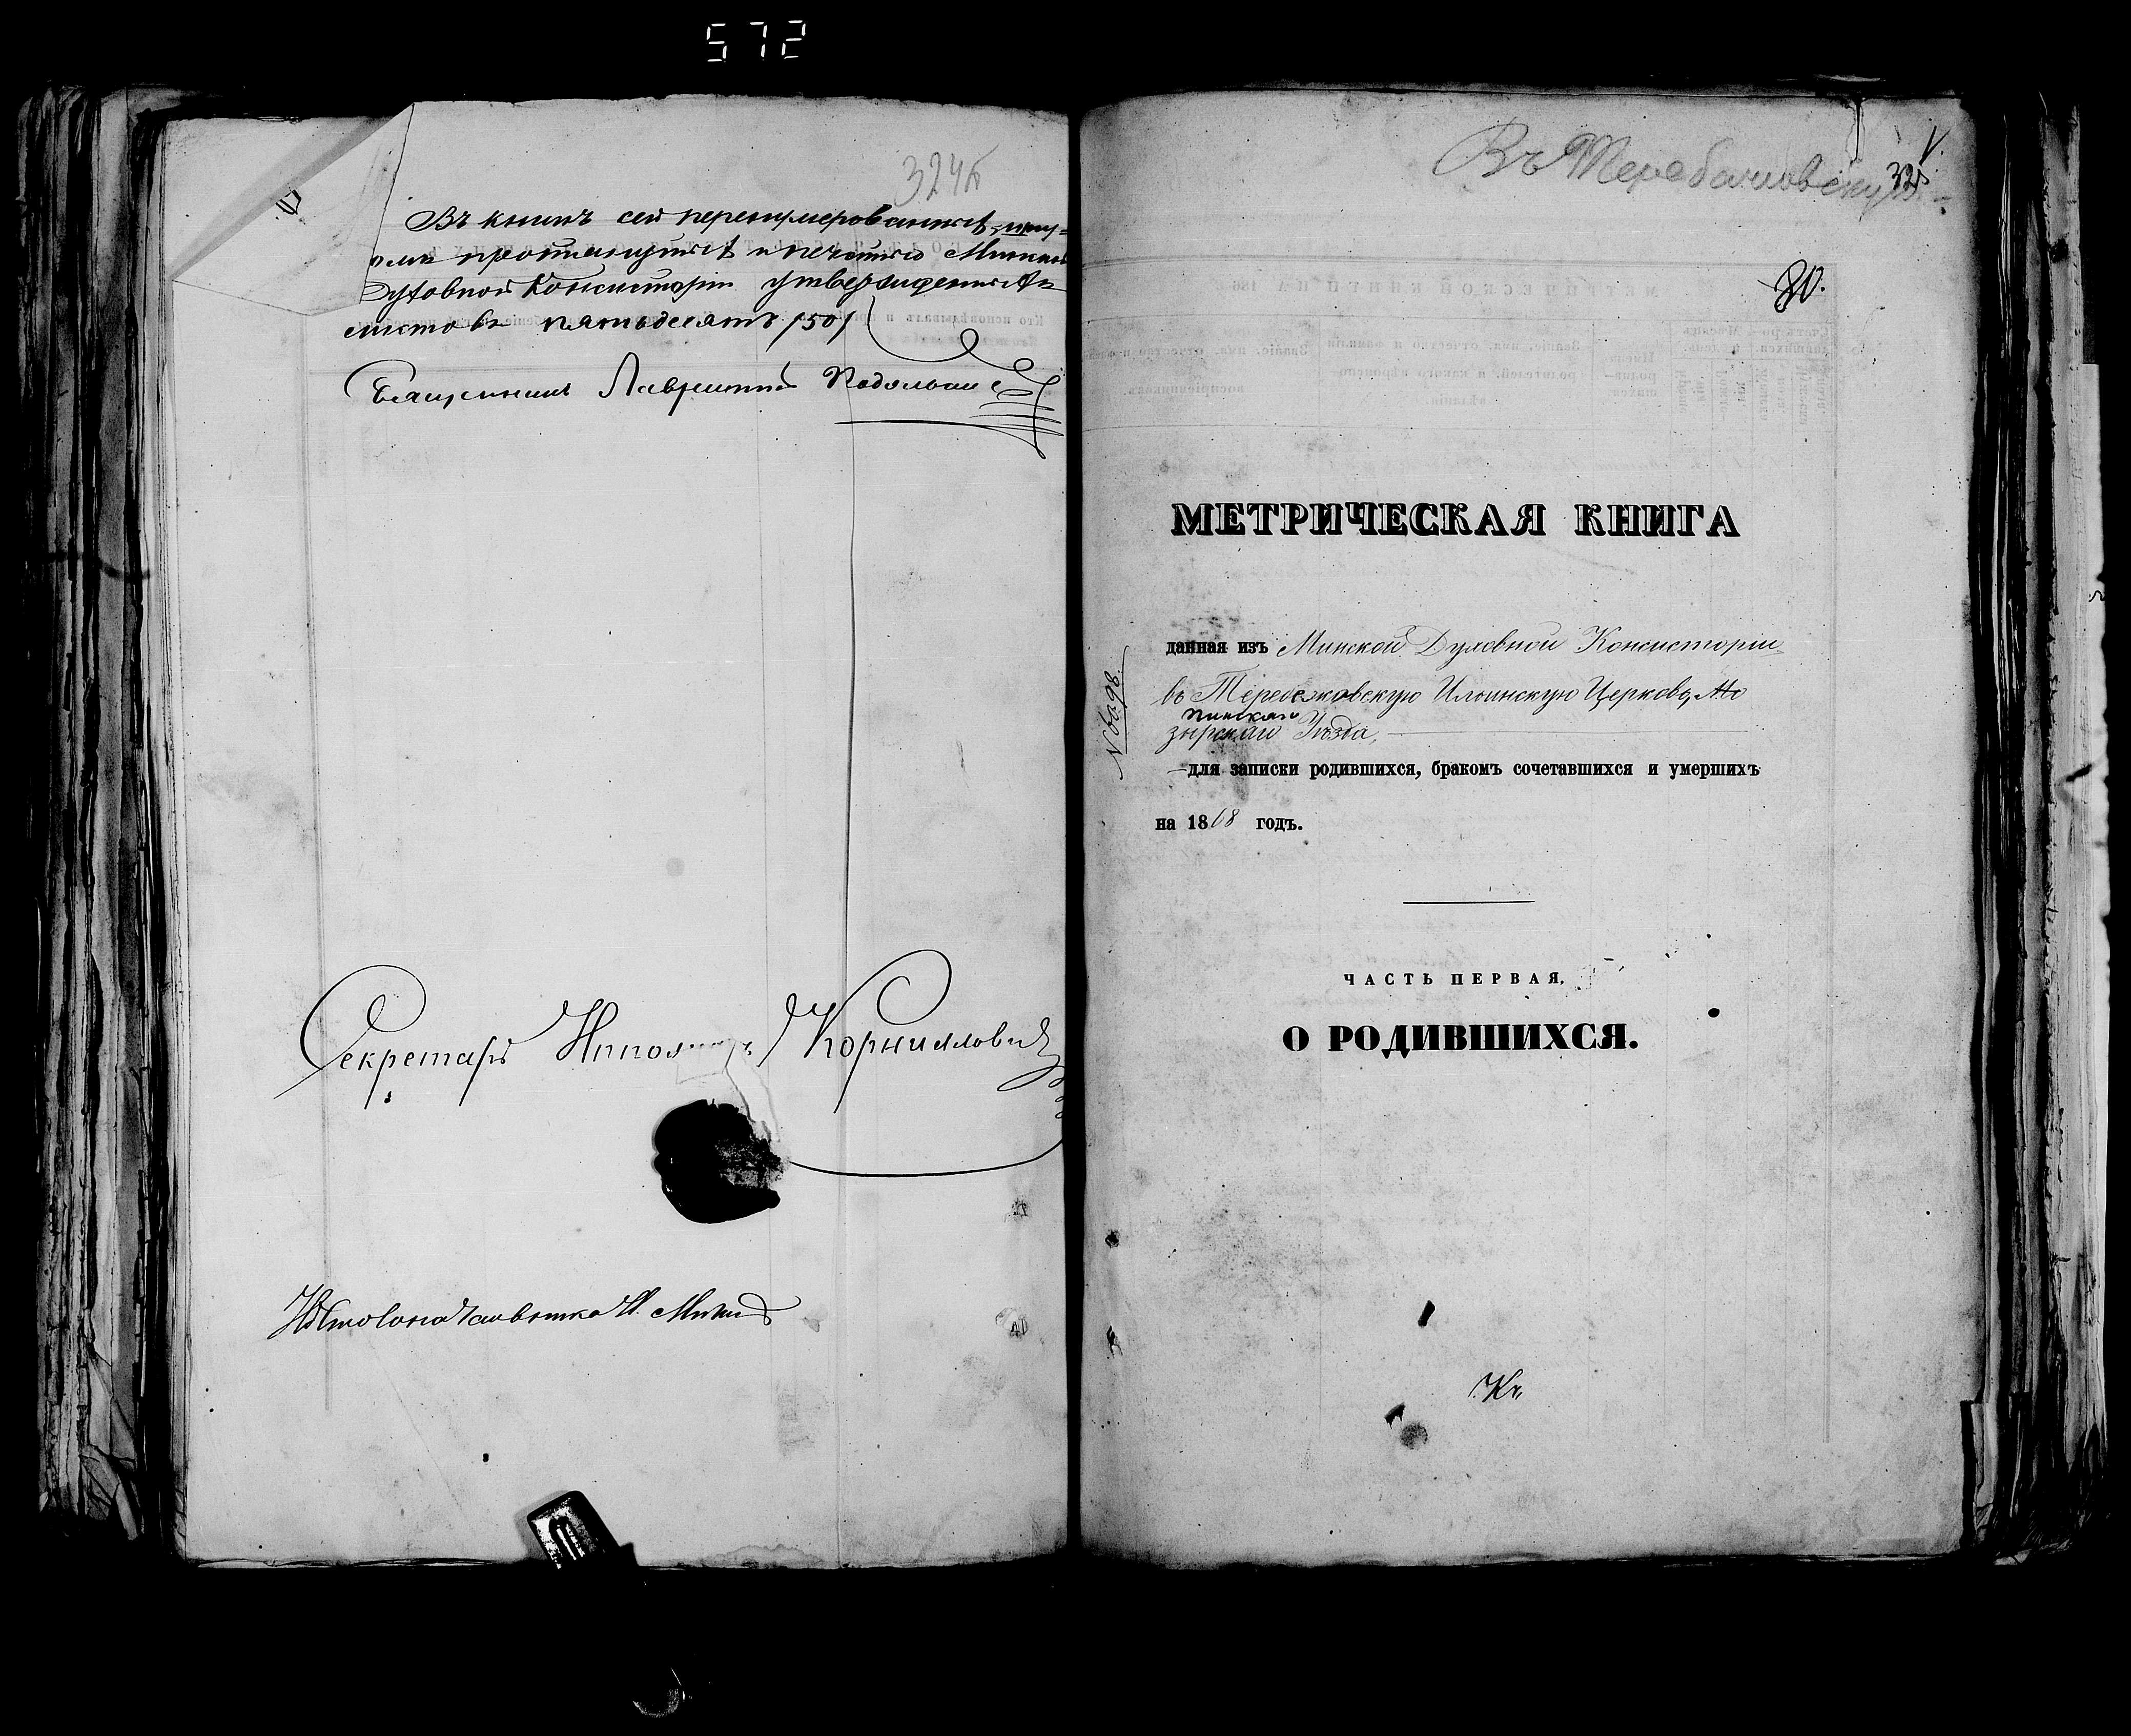 572
324б
Въ книгѣ сей перенумерованныхъ, шну-
ромъ протянутыхъ и печатью Минской
Духовной Консисторіи утвержденныхъ
листовъ пятьдесятъ /50/
Священникъ Лаврентій
Секретарь Корниловичъ
Въ
325
80.
МЕТРИЧЕСКАЯ КНИГА
данная изъ Минской Духовной Консисторіи
въ Теребежовскую Ильинскую Церковь, Мо
Пинскаго
зырскаго Уѣзда,
для записки родившихся, бракомъ сочетавшихся и умершихъ
на 1868 годъ.
ЧАСТЬ ПЕРВАЯ.
О РОДИВШИХСЯ.